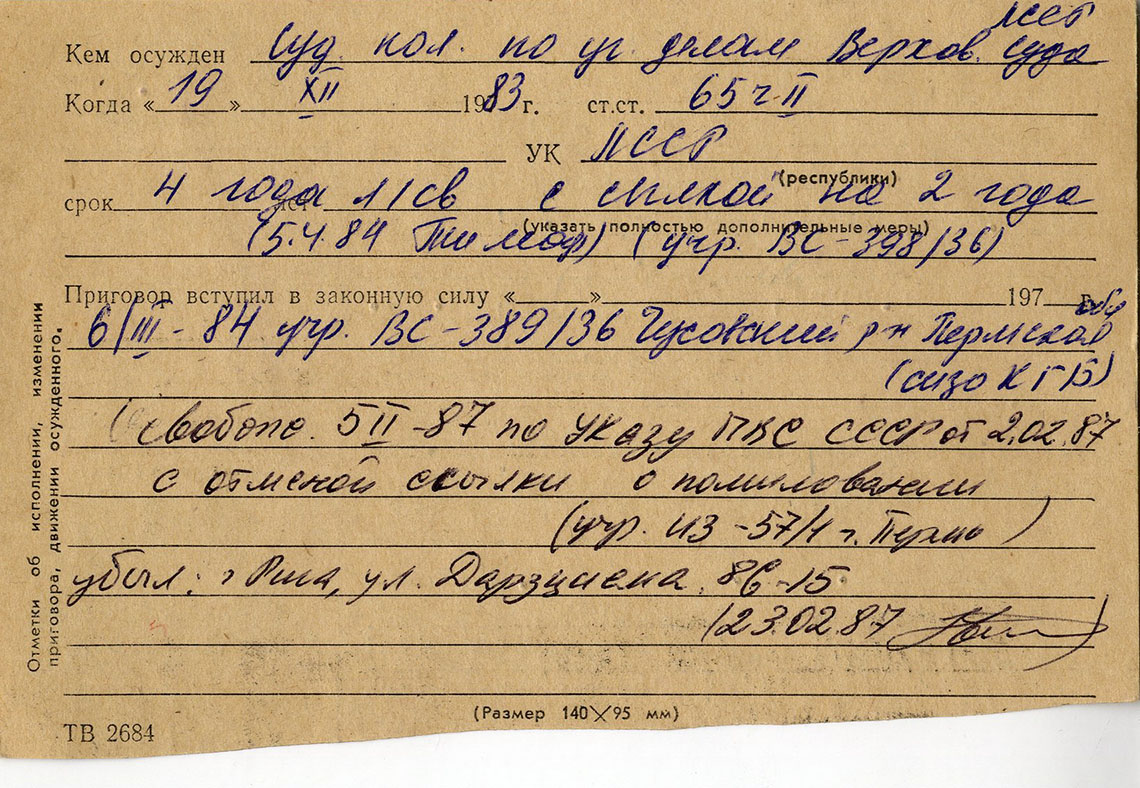 ЛССР
Кем осужден Суд. кол. по уг. делам Верхов. Суда
Когда « 19 » XII 1983 г. ст.ст. 65 ч II
УК ЛССР
(республики)
срок 4 года лет 11 св с сылкой на 2 года
(указать полностью дополнительные меры)
(5.4.84 ) (учр. ВС-398/36)
Приговор вступил в законную силу « » 197 г.
6/III-84 учр. ВС-389/36 Чусовский р-н Пермской обл
(сизо КГБ)
свобожд. 5 II-87 по Указу ПВС СССР от 2.02.87
с отменой ссылки о помиловании
(учр. ИЗ-57/1 г. Пермь)
убыл: г Рига, ул. Дарзциема 86-15
(23.02.87
Отметки об исполнении, изменении
приговора, движении осужденного.
(Размер 140×95 мм)
ТВ 2684